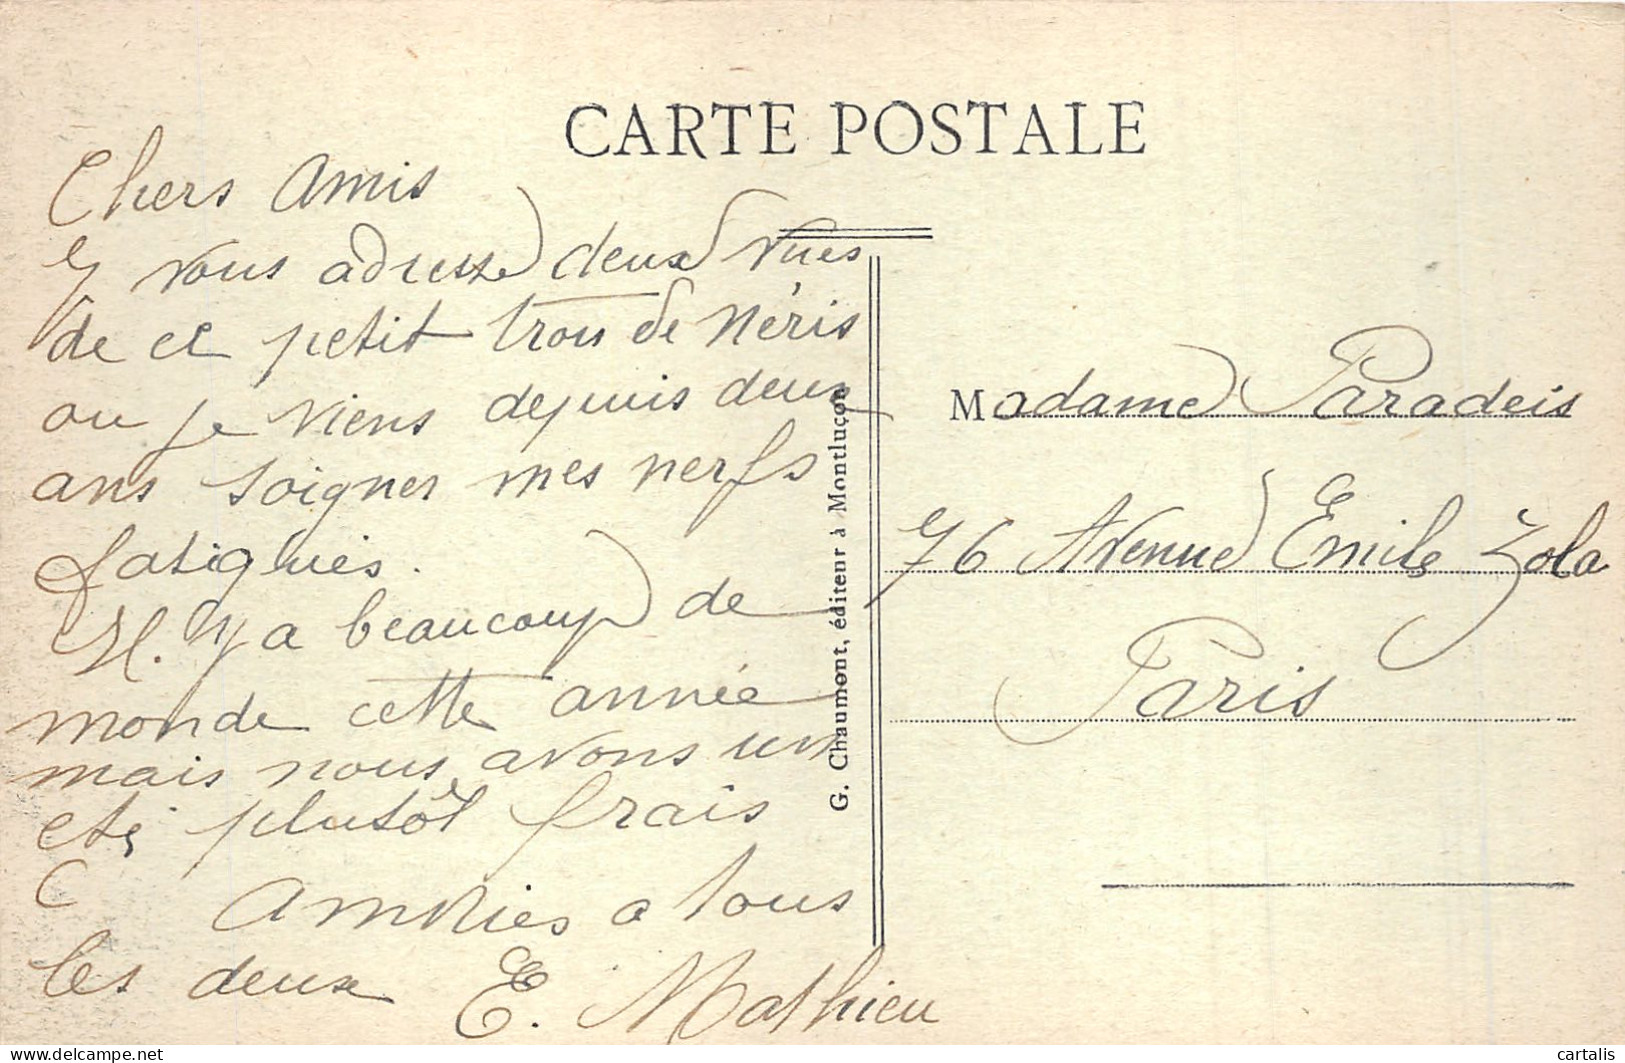 CARTE POSTALE
Chers Amis
Je vous adresse deux vues
de ce petit trou de Néris
ou je viens depuis deux
ans soigner mes nerfs
fatigués.
Il y a beaucoup de
monde cette année
mais nous avons un
eté plutôt frais
Amitiés a tous
les deux E. Mathieu
G. Chaumont, éditeur à Montluçon
Madame Paradeis
76 Avenue Emile Zola
Paris
cartalis